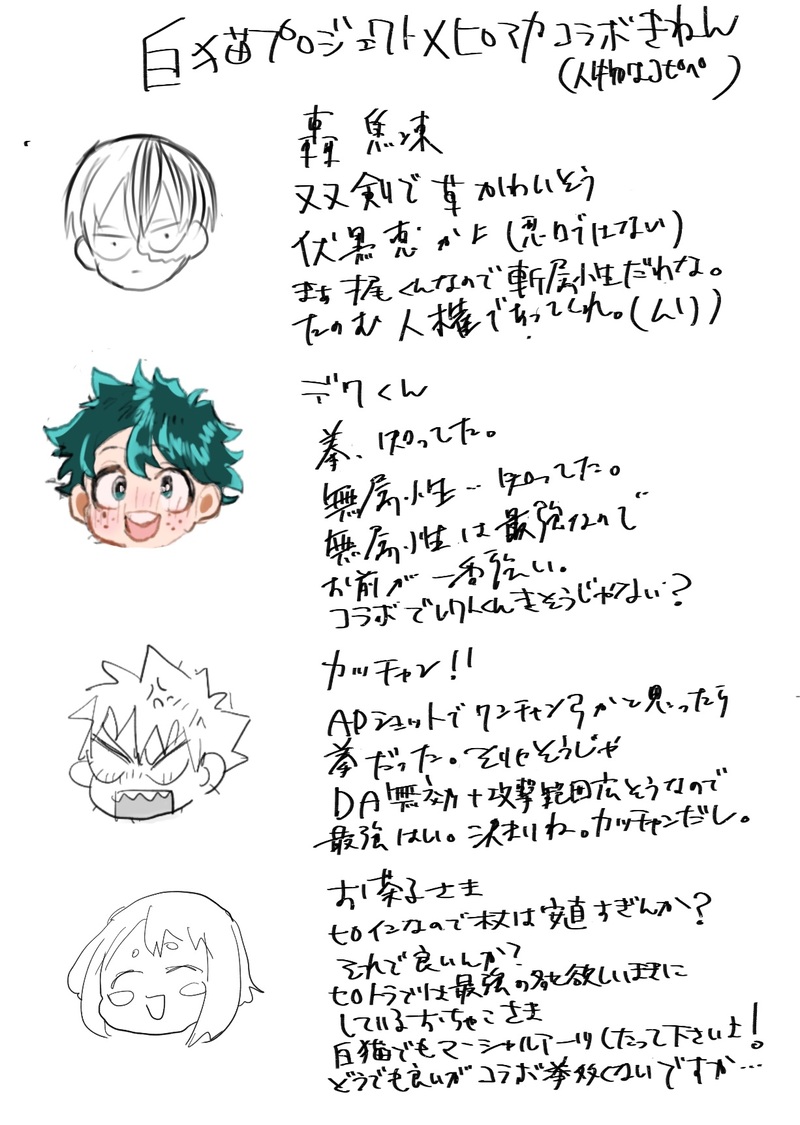 白猫プロジェクト×ヒロアカコラボきねん
(人物はコピペ)
轟 焦凍
双剣で草 かわいそう
伏黒恵かよ(悪口ではない)
まぁ梶くんなので斬属性だわな。
たのむ人権であってくれ。(ムリ)
デクくん
拳、知ってた。
無属性…知ってた。
無属性は最強なので
お前が一番強い。
コラボでレクトくんきそうじゃない?
カッチャン!!
APショットでワンチャン弓かと思ったら
拳だった。そりゃそうじゃ
DA無効+攻撃範囲広そうなので
最強はい。決まりね。カッチャンだし。
お茶子さま
ヒロインなので杖は安直すぎんか?
それで良いんか?
ヒロトラでは最強の名を欲しいままに
しているおちゃこさま
白猫でもマーシャルアーツしたって下さいよ!
どうでも良いがコラボ拳多くないですか…